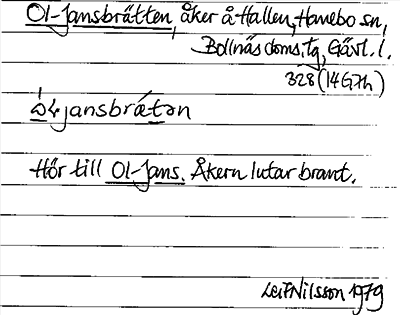 Ol-Jansbrätten, åker å Hallen, Hanebo sn,
Bollnäs doms. tg, Gävl. l.
328 (14G7h)
jansbrätən
Hör till Ol-Jans. Åkern lutar brant.
Leif Nilsson 1979